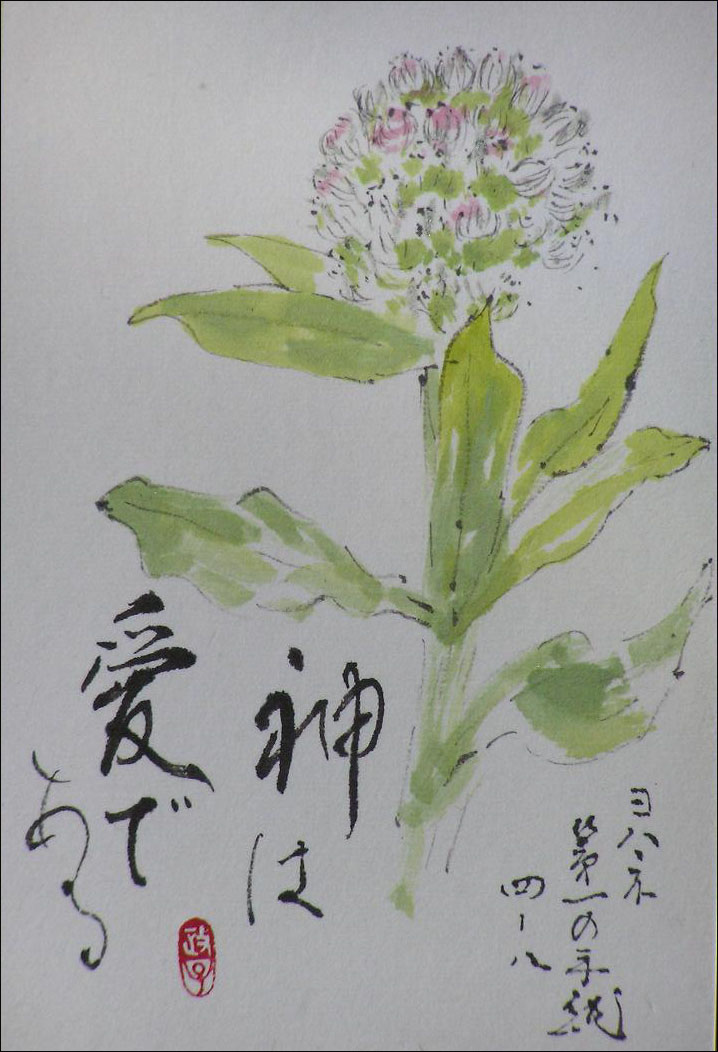 神は
愛で
ある
ヨハネ
第一の手紙
四ー八
政子